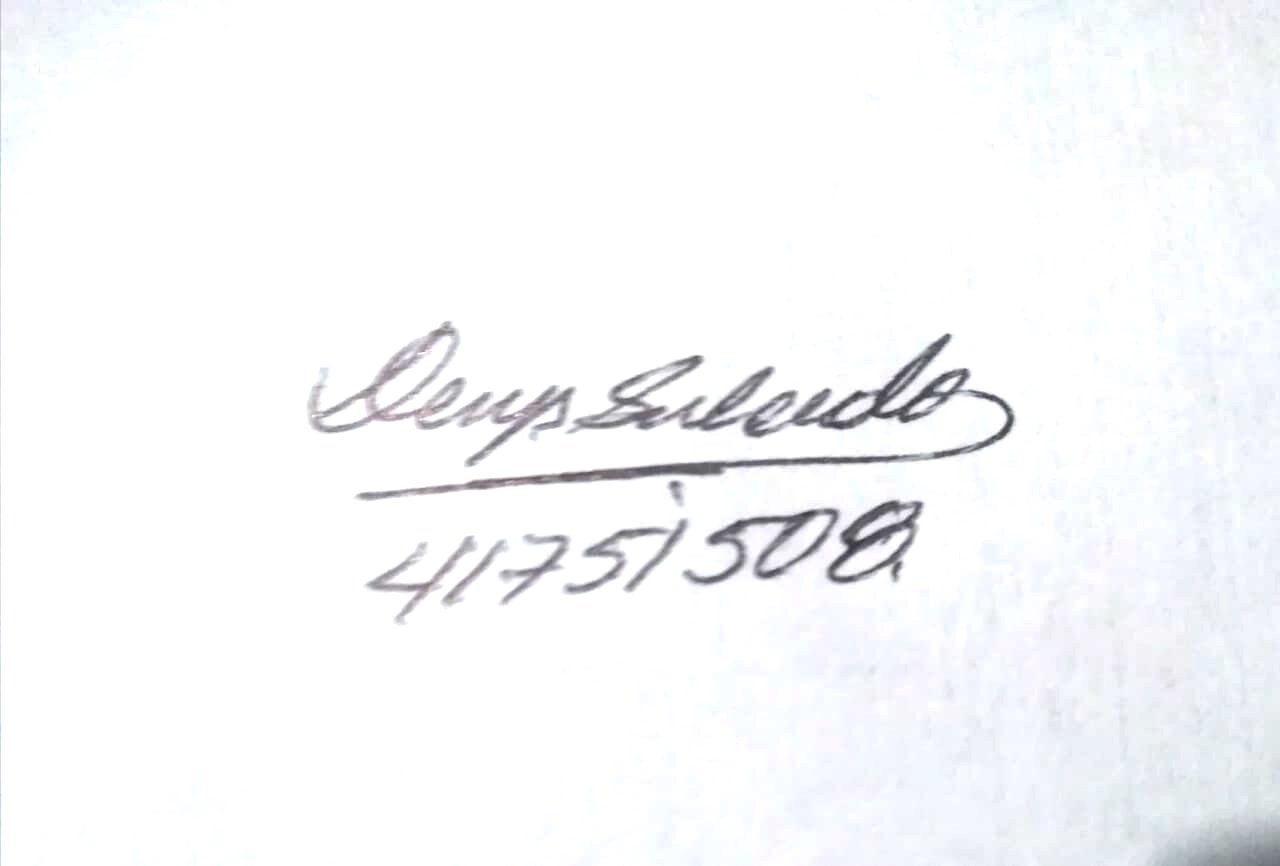 Denys Salcedo
41751508